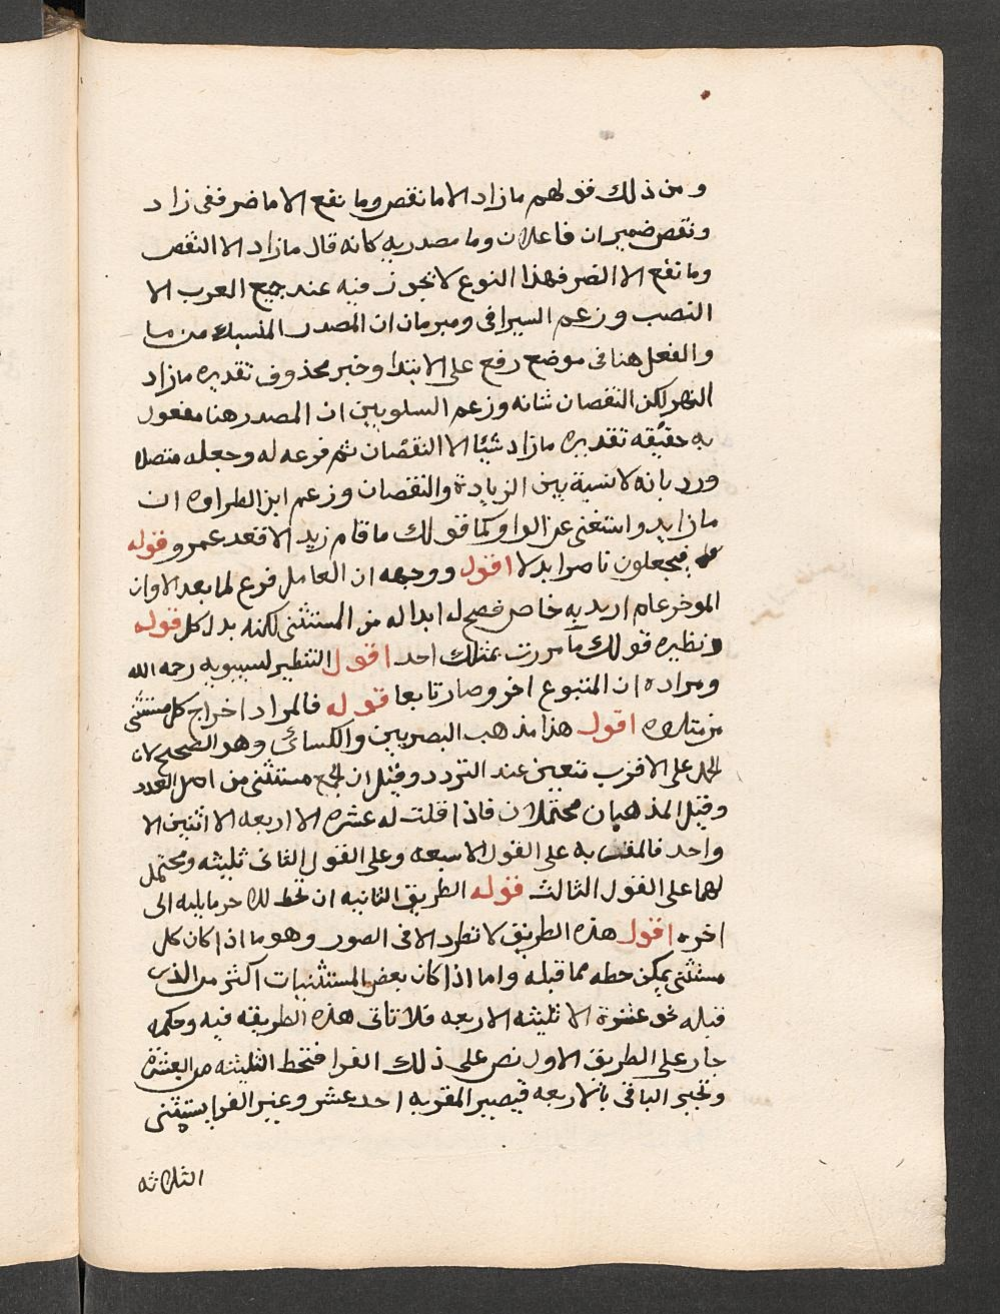 ومن ذلك قولهم ما زاد الا ما نقص وما نفع الا ما ضر ففى زاد
ونقص ضميران فاعلان وما مصدريه كانه قال ما زاد الا النقص
وما نفع الا الضر فهذا النوع لا يجوز فيه عند جميع العرب الا
النصب وزعم السيرافى ومبرمان ان المصدر المنسبك من ما
والفعل هنا فى موضع رفع على الابتدا وخبر محذوف تقديره ما زاد
النهر لكن النقصان شانه وزعم السلوبين ان المصدر هنا مفعول
به حقيقه تقديره ما زاد شيئا الا النقصان ثم فرعه له وجعله متصلا
ورد بانه لا نسبة بين الزيادة والنقصان وزعم ابن الطراوه ان
ما زايد واستغنى عن الواو كما قولك ما قام زيد الا قعد عمرو قوله
فيجعلون ناصرا بدلا اقول ووجهه ان العامل فرع لما بعد الا وان
الموخر عام اريد به خاص فصح له ابداله من المستثنى لكنه بدل كل قوله
ونظيره قولك ما مررت بمثلك احد اقول التنظير لسيبويه رحمه الله
ومراده ان المتبوع اخر وصار تابعا قوله فالمراد اخراج كل مستثنى
من متلوه اقول هذا مذهب البصريين والكسائى وهو الصحيح لان
الحمل على الاقرب متعين عند التردد وقيل ان الجمع مستثنى من اصل العدد
وقيل المذهبان محتملان فاذا قلت له عشره الا اربعه الا اثنين الا
واحد فالمقر به على القول الا سبعه وعلى القول الثانى ثليثه ومحتمل
لهما على القول الثالث قوله الطريق الثانيه ان تحط للاخر مما يليه الى
اخره اقول هذه الطريق لا تطرد الا فى الصور وهو ما اذا كان كل
مستثنى يمكن حطه مما قبله واما اذا كان بعض المستثنيات اكثر من الذى
قبله نحو عشرة الا ثليثه الا ربعه فلا تاتى هذه الطريقه فيه وحكمه
جار على الطريق الاول نص على ذلك الفرا فتحط الثليثه من العشرة
وتجبر الباقى بالاربعه فيصير المقر به احد عشر وغير الفرا يستثنى
الثلاثه